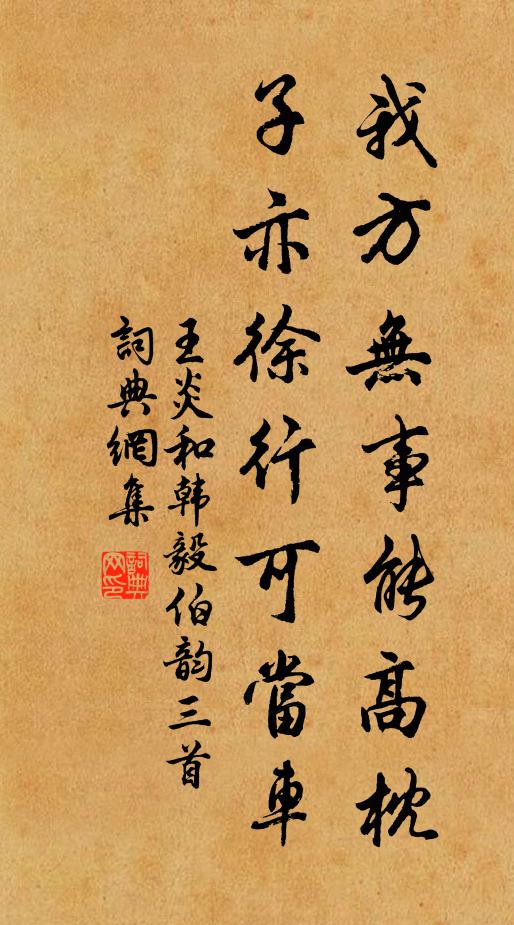 我方無事能高枕
子亦徐行可當車
王炎和韩毅伯韵三首
詞典網集
詞典
网印